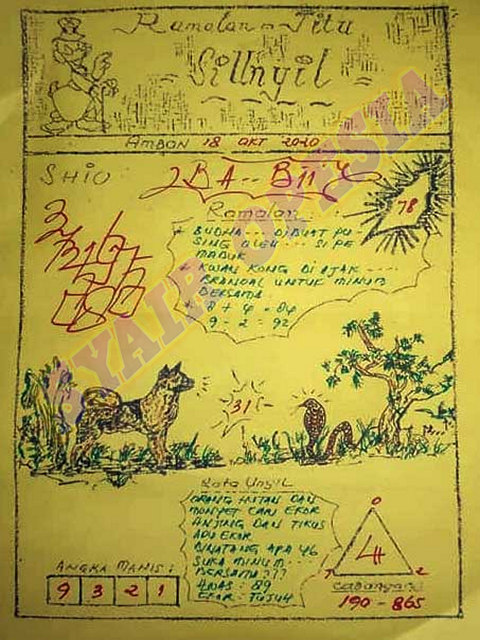 Ramalan = Jitu
Si Unyil
AMBON 18 OKT 2020
SHIO
2BA -- B11
78
Ramalan
* BUDHA -- DIBUAT PU-
SING OLEH --- SI PE
MABUK
* KWAN KONG DI AJAK ----
BRANDAL UNTUK MINUM
BERSAMA
* 8 + 4 = 84
9 - 2 = 92
31
Kata Unyil
ORANG HUTAN DAN
MONYET CARI EKOR
ANJING DAN TIKUS
ADU EKOR
BINATANG APA YG
SUKA MINUM ---
BERSAMA ???
AWAS : 89
EKOR : TUJUH
ANGKA MANIS :
9 3 2 1
0
4
7 2
CADANGAN :
190 - 865
SYAIR OPESIA